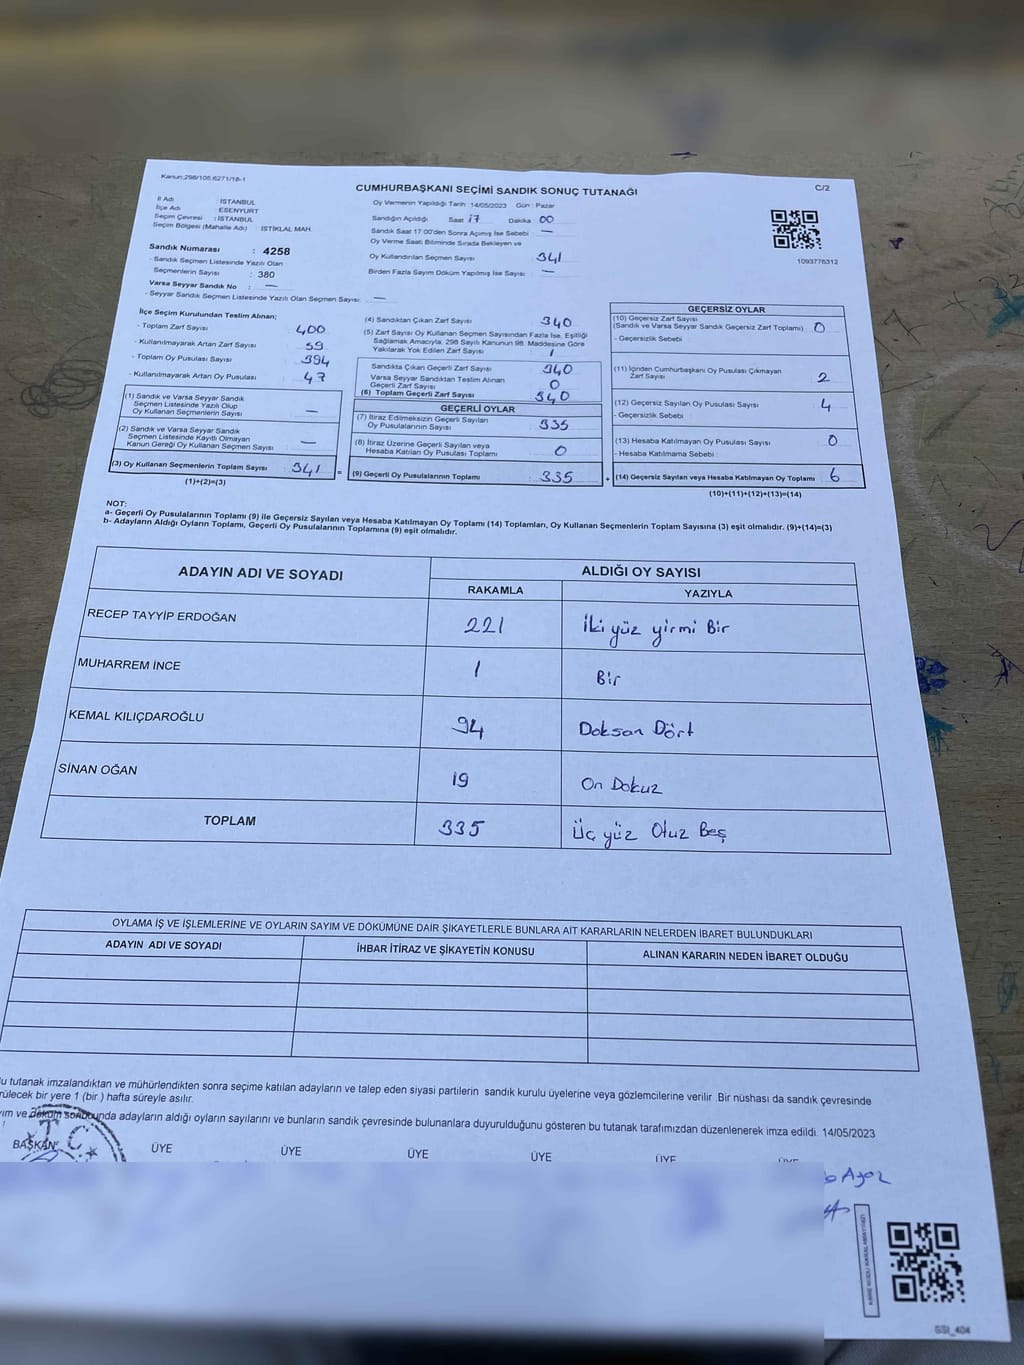 Kanun:298/105.6271/18-1
CUMHURBAŞKANI SEÇİMİ SANDIK SONUÇ TUTANAĞI
C/2
İl Adı : İSTANBUL
İlçe Adı : ESENYURT
Seçim Çevresi : İSTANBUL
Seçim Bölgesi (Mahalle Adı) : İSTİKLAL MAH.
Oy Vermenin Yapıldığı Tarih :14/05/2023 Gün : Pazar
Sandığın Açıldığı Saat 17 Dakika 00
Sandık Saat 17:00'den Sonra Açılmış İse Sebebi : —
Oy Verme Saati Bitiminde Sırada Bekleyen ve
Oy Kullandırılan Seçmen Sayısı 341
Birden Fazla Sayım Döküm Yapılmış İse Sayısı : —
1093776312
Sandık Numarası : 4258
- Sandık Seçmen Listesinde Yazılı Olan
Seçmenlerin Sayısı : 380
Varsa Seyyar Sandık No : —
- Seyyar Sandık Seçmen Listesinde Yazılı Olan Seçmen Sayısı: —
İlçe Seçim Kurulundan Teslim Alınan;
- Toplam Zarf Sayısı : 400
- Kullanılmayarak Artan Zarf Sayısı : 59
- Toplam Oy Pusulası Sayısı : 394
- Kullanılmayarak Artan Oy Pusulası : 47
(1) Sandık ve Varsa Seyyar Sandık
Seçmen Listesinde Yazılı Olup
Oy Kullanan Seçmenlerin Sayısı : —
(2) Sandık ve Varsa Seyyar Sandık
Seçmen Listesinde Kayıtlı Olmayan
Kanun Gereği Oy Kullanan Seçmen Sayısı : —
(3) Oy Kullanan Seçmenlerin Toplam Sayısı : 341 =
(1)+(2)=(3)
(4) Sandıktan Çıkan Zarf Sayısı : 340
(5) Zarf Sayısı Oy Kullanan Seçmen Sayısından Fazla İse, Eşitliği
Sağlamak Amacıyla, 298 Sayılı Kanunun 98. Maddesine Göre
Yakılarak Yok Edilen Zarf Sayısı : 1
Sandıkta Çıkan Geçerli Zarf Sayısı : 340
Varsa Seyyar Sandıktan Teslim Alınan
Geçerli Zarf Sayısı : 0
(6) Toplam Geçerli Zarf Sayısı : 340
GEÇERLİ OYLAR
(7) İtiraz Edilmeksizin Geçerli Sayılan
Oy Pusulalarının Sayısı : 335
(8) İtiraz Üzerine Geçerli Sayılan veya
Hesaba Katılan Oy Pusulası Toplamı : 0
(9) Geçerli Oy Pusulalarının Toplamı : 335 +
GEÇERSİZ OYLAR
(10) Geçersiz Zarf Sayısı
(Sandık ve Varsa Seyyar Sandık Geçersiz Zarf Toplamı) : 0
- Geçersizlik Sebebi :
(11) İçinden Cumhurbaşkanı Oy Pusulası Çıkmayan
Zarf Sayısı : 2
(12) Geçersiz Sayılan Oy Pusulası Sayısı : 4
- Geçersizlik Sebebi :
(13) Hesaba Katılmayan Oy Pusulası Sayısı : 0
- Hesaba Katılmama Sebebi :
(14) Geçersiz Sayılan veya Hesaba Katılmayan Oy Toplamı : 6
(10)+(11)+(12)+(13)=(14)
NOT:
a- Geçerli Oy Pusulalarının Toplamı (9) ile Geçersiz Sayılan veya Hesaba Katılmayan Oy Toplamı (14) Toplamları, Oy Kullanan Seçmenlerin Toplam Sayısına (3) eşit olmalıdır. (9)+(14)=(3)
b- Adayların Aldığı Oyların Toplamı, Geçerli Oy Pusulalarının Toplamına (9) eşit olmalıdır.
ADAYIN ADI VE SOYADI ALDIĞI OY SAYISI
RAKAMLA YAZIYLA
RECEP TAYYİP ERDOĞAN 221 İki yüz yirmi Bir
MUHARREM İNCE 1 Bir
KEMAL KILIÇDAROĞLU 94 Doksan Dört
SİNAN OĞAN 19 On Dokuz
TOPLAM 335 Üç yüz Otuz Beş
OYLAMA İŞ VE İŞLEMLERİNE VE OYLARIN SAYIM VE DÖKÜMÜNE DAİR ŞİKAYETLERLE BUNLARA AİT KARARLARIN NELERDEN İBARET BULUNDUKLARI
ADAYIN ADI VE SOYADI İHBAR İTİRAZ VE ŞİKAYETİN KONUSU ALINAN KARARIN NEDEN İBARET OLDUĞU
u tutanak imzalandıktan ve mühürlendikten sonra seçime katılan adayların ve talep eden siyasi partilerin sandık kurulu üyelerine veya gözlemcilerine verilir. Bir nüshası da sandık çevresinde
rülecek bir yere 1 (bir ) hafta süreyle asılır.
ım ve döküm sonbunda adayların aldığı oyların sayılarını ve bunların sandık çevresinde bulunanlara duyurulduğunu gösteren bu tutanak tarafımızdan düzenlenerek imza edildi. 14/05/2023
T.C.
BAŞKAN ÜYE ÜYE ÜYE ÜYE ÜYE ÜYE
GSI_404